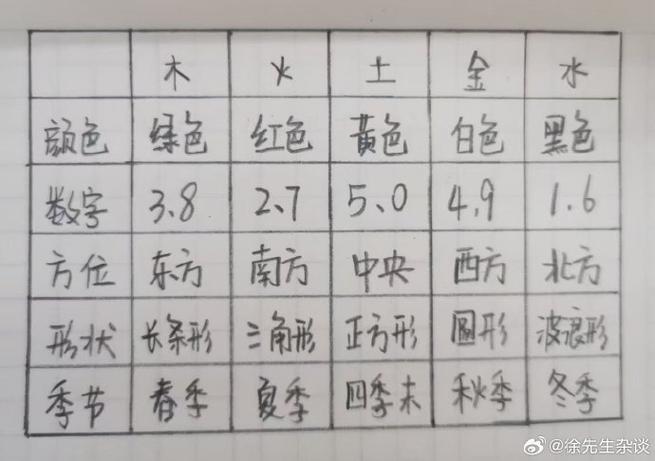 木 火 土 金 水
颜色 绿色 红色 黄色 白色 黑色
数字 3、8 2、7 5、0 4、9 1、6
方位 东方 南方 中央 西方 北方
形状 长条形 三角形 正方形 圆形 波浪形
季节 春季 夏季 四季末 秋季 冬季
@徐先生杂谈